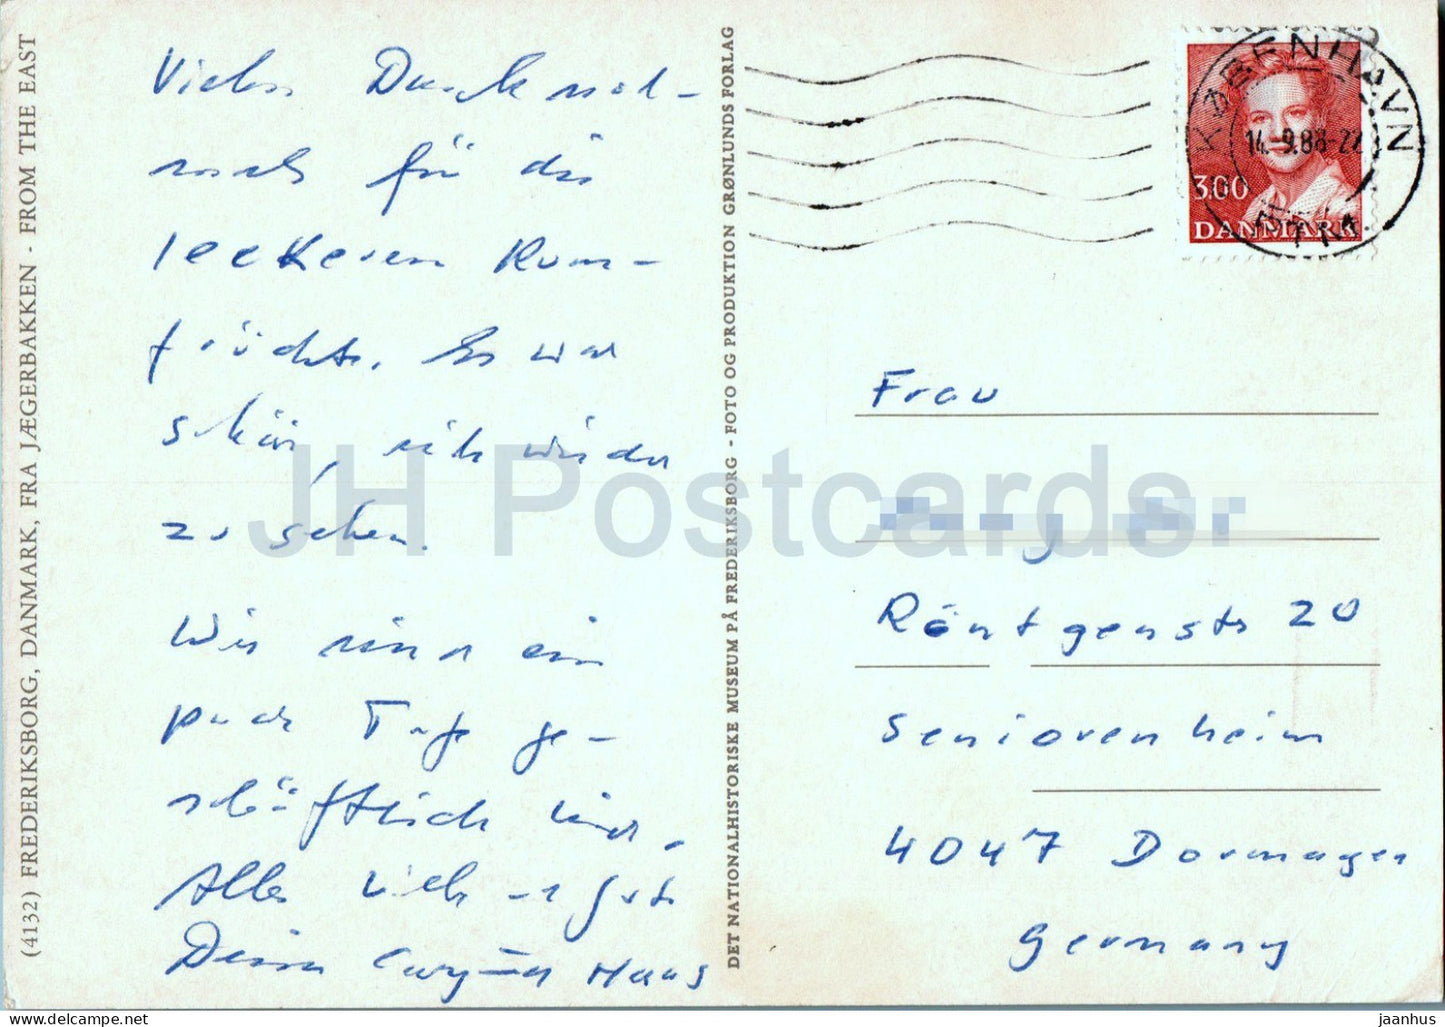 (4132) FREDERIKSBORG, DANMARK, FRA JÆGERBAKKEN - FROM THE EAST
Vielen Dank noch-
mals für die
leckeren Rum-
früchte. Es war
schön, dich wieder
zu sehen.
Wir sind ein
paar Tage ge-
schäftlich hier.
Alles Liebe gute
Deine Hans
DET NATIONALHISTORISKE MUSEUM PÅ FREDERIKSBORG - FOTO OG PRODUKTION GRØNLUNDS FORLAG
KØBENHAVN
14.-9.88-22
3.00
DANMARK
Frau
Röntgenstr 20
Seniorenheim
4047 Dormagen
Germany
JH Postcards
jaanhus www.delcampe.net